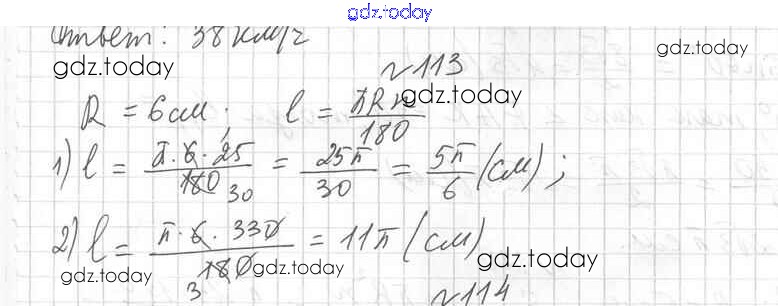 gdz.today
Ответ: 38 км/ч
gdz.today
gdz.today
№113
R = 6 см; l = πRn/180
gdz.today
1) l = π·6·25/180 30 = 25π/30 = 5π/6 (см);
2) l = π·6·330/180 3 = 11π (см)
gdz.today
gdz.today
gdz.today
№114